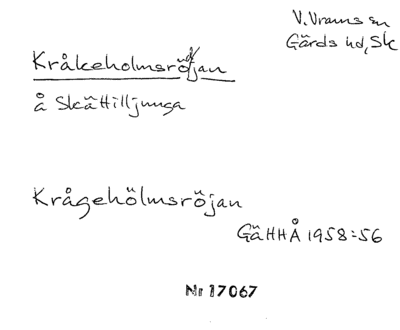 V. Vrams sn
Gärds hd, Sk
Kråkeholmsröjan
å Skättilljunga
Krågehölmsröjan
GäHHÅ 1958:56
Nr 17067